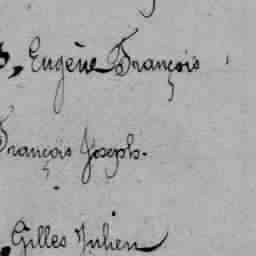 , Eugène François
François Joseph.
, Gilles Julien